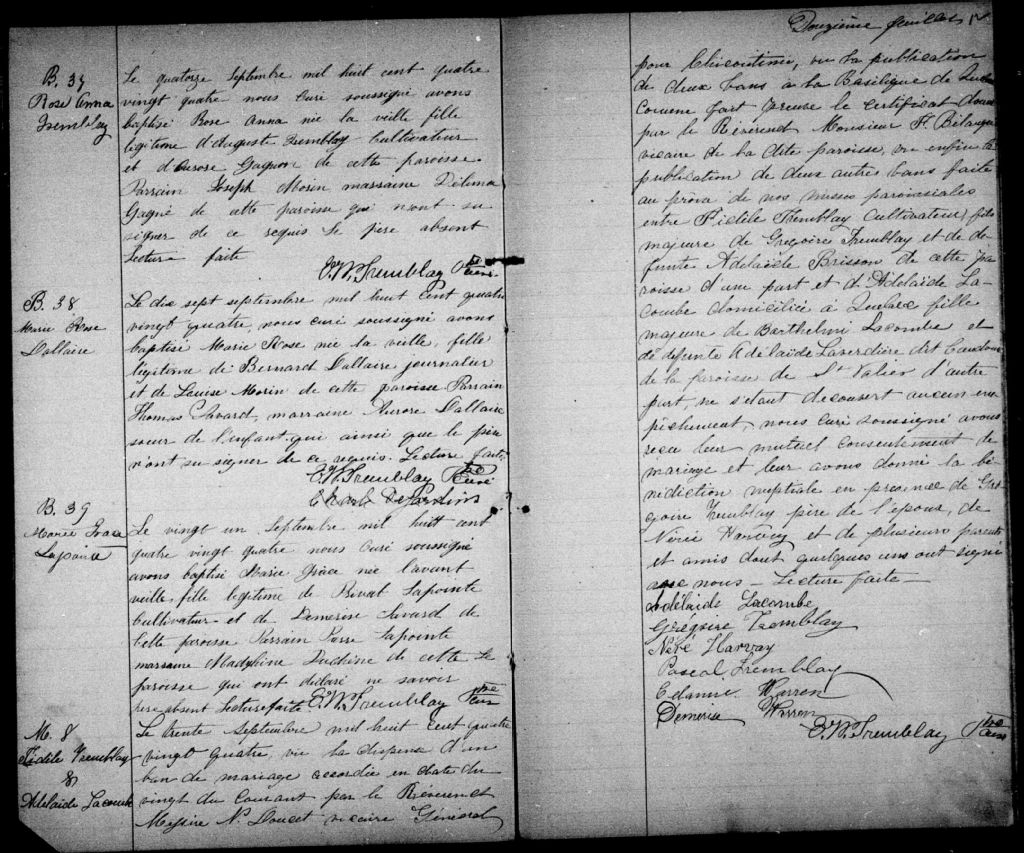 B. 37
Rose Anna
Tremblay
Le quatorze Septembre mil huit cent quatre
vingt quatre nous curé soussigné avons
baptisé Rose Anna née la veille fille
légitime d'Auguste Tremblay Cultivateur
et d'Aurose Gagnon de cette paroisse.
Parrain Joseph Morin marraine Délima
Gagné de cette paroisse qui n'ont su
signer de ce requis Le père absent
Lecture faite
Tremblay Ptre Curé
B. 38
Marie Rose
Dallaire
Le dix sept septembre mil huit Cent quatre
vingt quatre, nous curé soussigné avons
baptisé Marie Rose née la veille, fille
légitime de Bernard Dallaire journalier
et de Louise Morin de cette paroisse Parrain
Thomas Savard, marraine Aurore Dallaire
soeur de l'enfant qui ainsi que le père
n'ont su signer de ce requis. Lecture faite.
Tremblay Ptre Curé
B. 39
Marie Grace
Lapointe
Le vingt un Septembre mil huit cent
quatre vingt quatre nous curé soussigné
avons baptisé Marie Grâce née l'avant
veille, fille légitime de Privat Lapointe
cultivateur et de Damerise Savard de
cette paroisse Parrain Pierre Lapointe
marraine Duchêne de cette
paroisse qui ont déclaré ne savoir
père absent Lecture faite Tremblay Ptre Curé
M. 8
Fidèle Tremblay
&
Adelaide Lacombe
Le trente Septembre mil huit Cent quatre
vingt quatre, vu la dispense d'un
ban de mariage accordée en date du
vingt du Courant par le Révérend
Messire N. Doucet vicaire Général
Douzième feuillet
pour Chicoutimi, vu la publication
de deux bans à la Basilique de
Comme fait preuve le certificat
par le Révérend Monsieur F. Bélanger
vicaire de la dite paroisse, vu enfin la
publication de deux autres bans faite
au prône de nos messes paroissiales
entre Fidèle Tremblay Cultivateur, fils
majeur de Grégoire Tremblay et de dé-
funte Adelaïde Brisson de cette pa-
roisse d'une part et d'Adélaïde La-
combe domiciliée à Québec fille
majeure de Barthelmi Lacombe et
de défunte Adélaïde Laverdière dit
de la paroisse de St Valier d'autre
part, ne s'étant découvert aucun em-
pêchement, nous curé soussigné avons
recu leur mutuel consentement de
mariage et leur avons donné la bé-
nédiction nuptiale en présence de Gré-
goire Tremblay père de l'époux, de
Nérée Harvey et de plusieurs parents
et amis dont quelques uns ont signé
avec nous — Lecture faite —
Adélaïde Lacombe
Grégoire Tremblay
Néré Harvay
Pascal Tremblay
Warren
Demerise Warren
Tremblay Ptre Curé